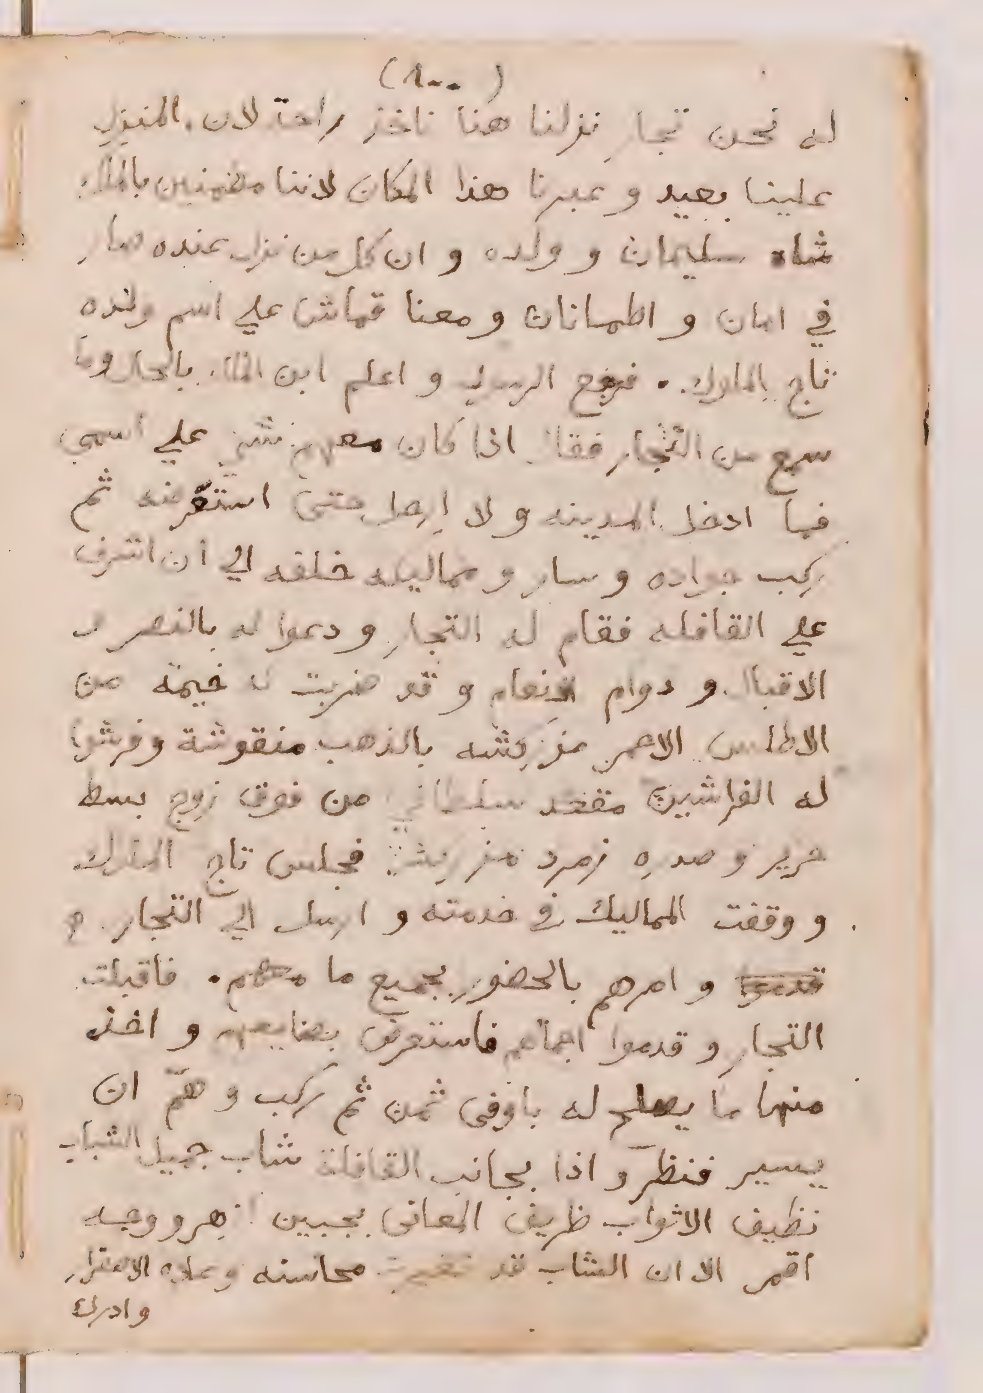 (١٠٠)
له نحن تجار نزلنا هنا ناخذ راحة لان المنزل
علينا بعيد و عبرنا هذا المكان لاننا مطمنين بالملك
شاه سليمان و ولده و ان كل من نزل عنده صار
في امان و اطمانان و معنا قماش علي اسم ولده
تاج الملوك . فرجع الرسول و اعلم ابن الملك بالحال وما
سمع من التجار فقال اذا كان معهم شئ علي اسمي
فما ادخل المدينه و لا ارحل حتى استعرضه ثم
ركب جواده و سار و مماليكه خلفه الي ان اشرف
علي القافله فقام له التجار و دعوا له بالنصر و
الاقبال و دوام الانعام و قد ضربت له خيمة من
الاطلس الاحمر مزركشه بالذهب منقوشة و فرشوا
له الفراشين مقعد سلطاني من فوق زوج بسط
حرير و صدره زمرد مزركش فجلس تاج الملوك
و وقفت المماليك في خدمته و ارسل الي التجار
قدموا و امرهم بالحضور بجميع ما معهم . فاقبلت
التجار و قدموا احمالهم فاستعرض بضايعهم و اخذ
منها ما يصلح له باوفى ثمن ثم ركب و همّ ان
يسير فنظر و اذا بجانب القافلة شاب جميل الشباب
نظيف الاثواب ظريف المعانى بجبين ازهر و وجه
اقمر الا ان الشاب قد تغيرت محاسنه و علاه الاصفرار
و ادرك